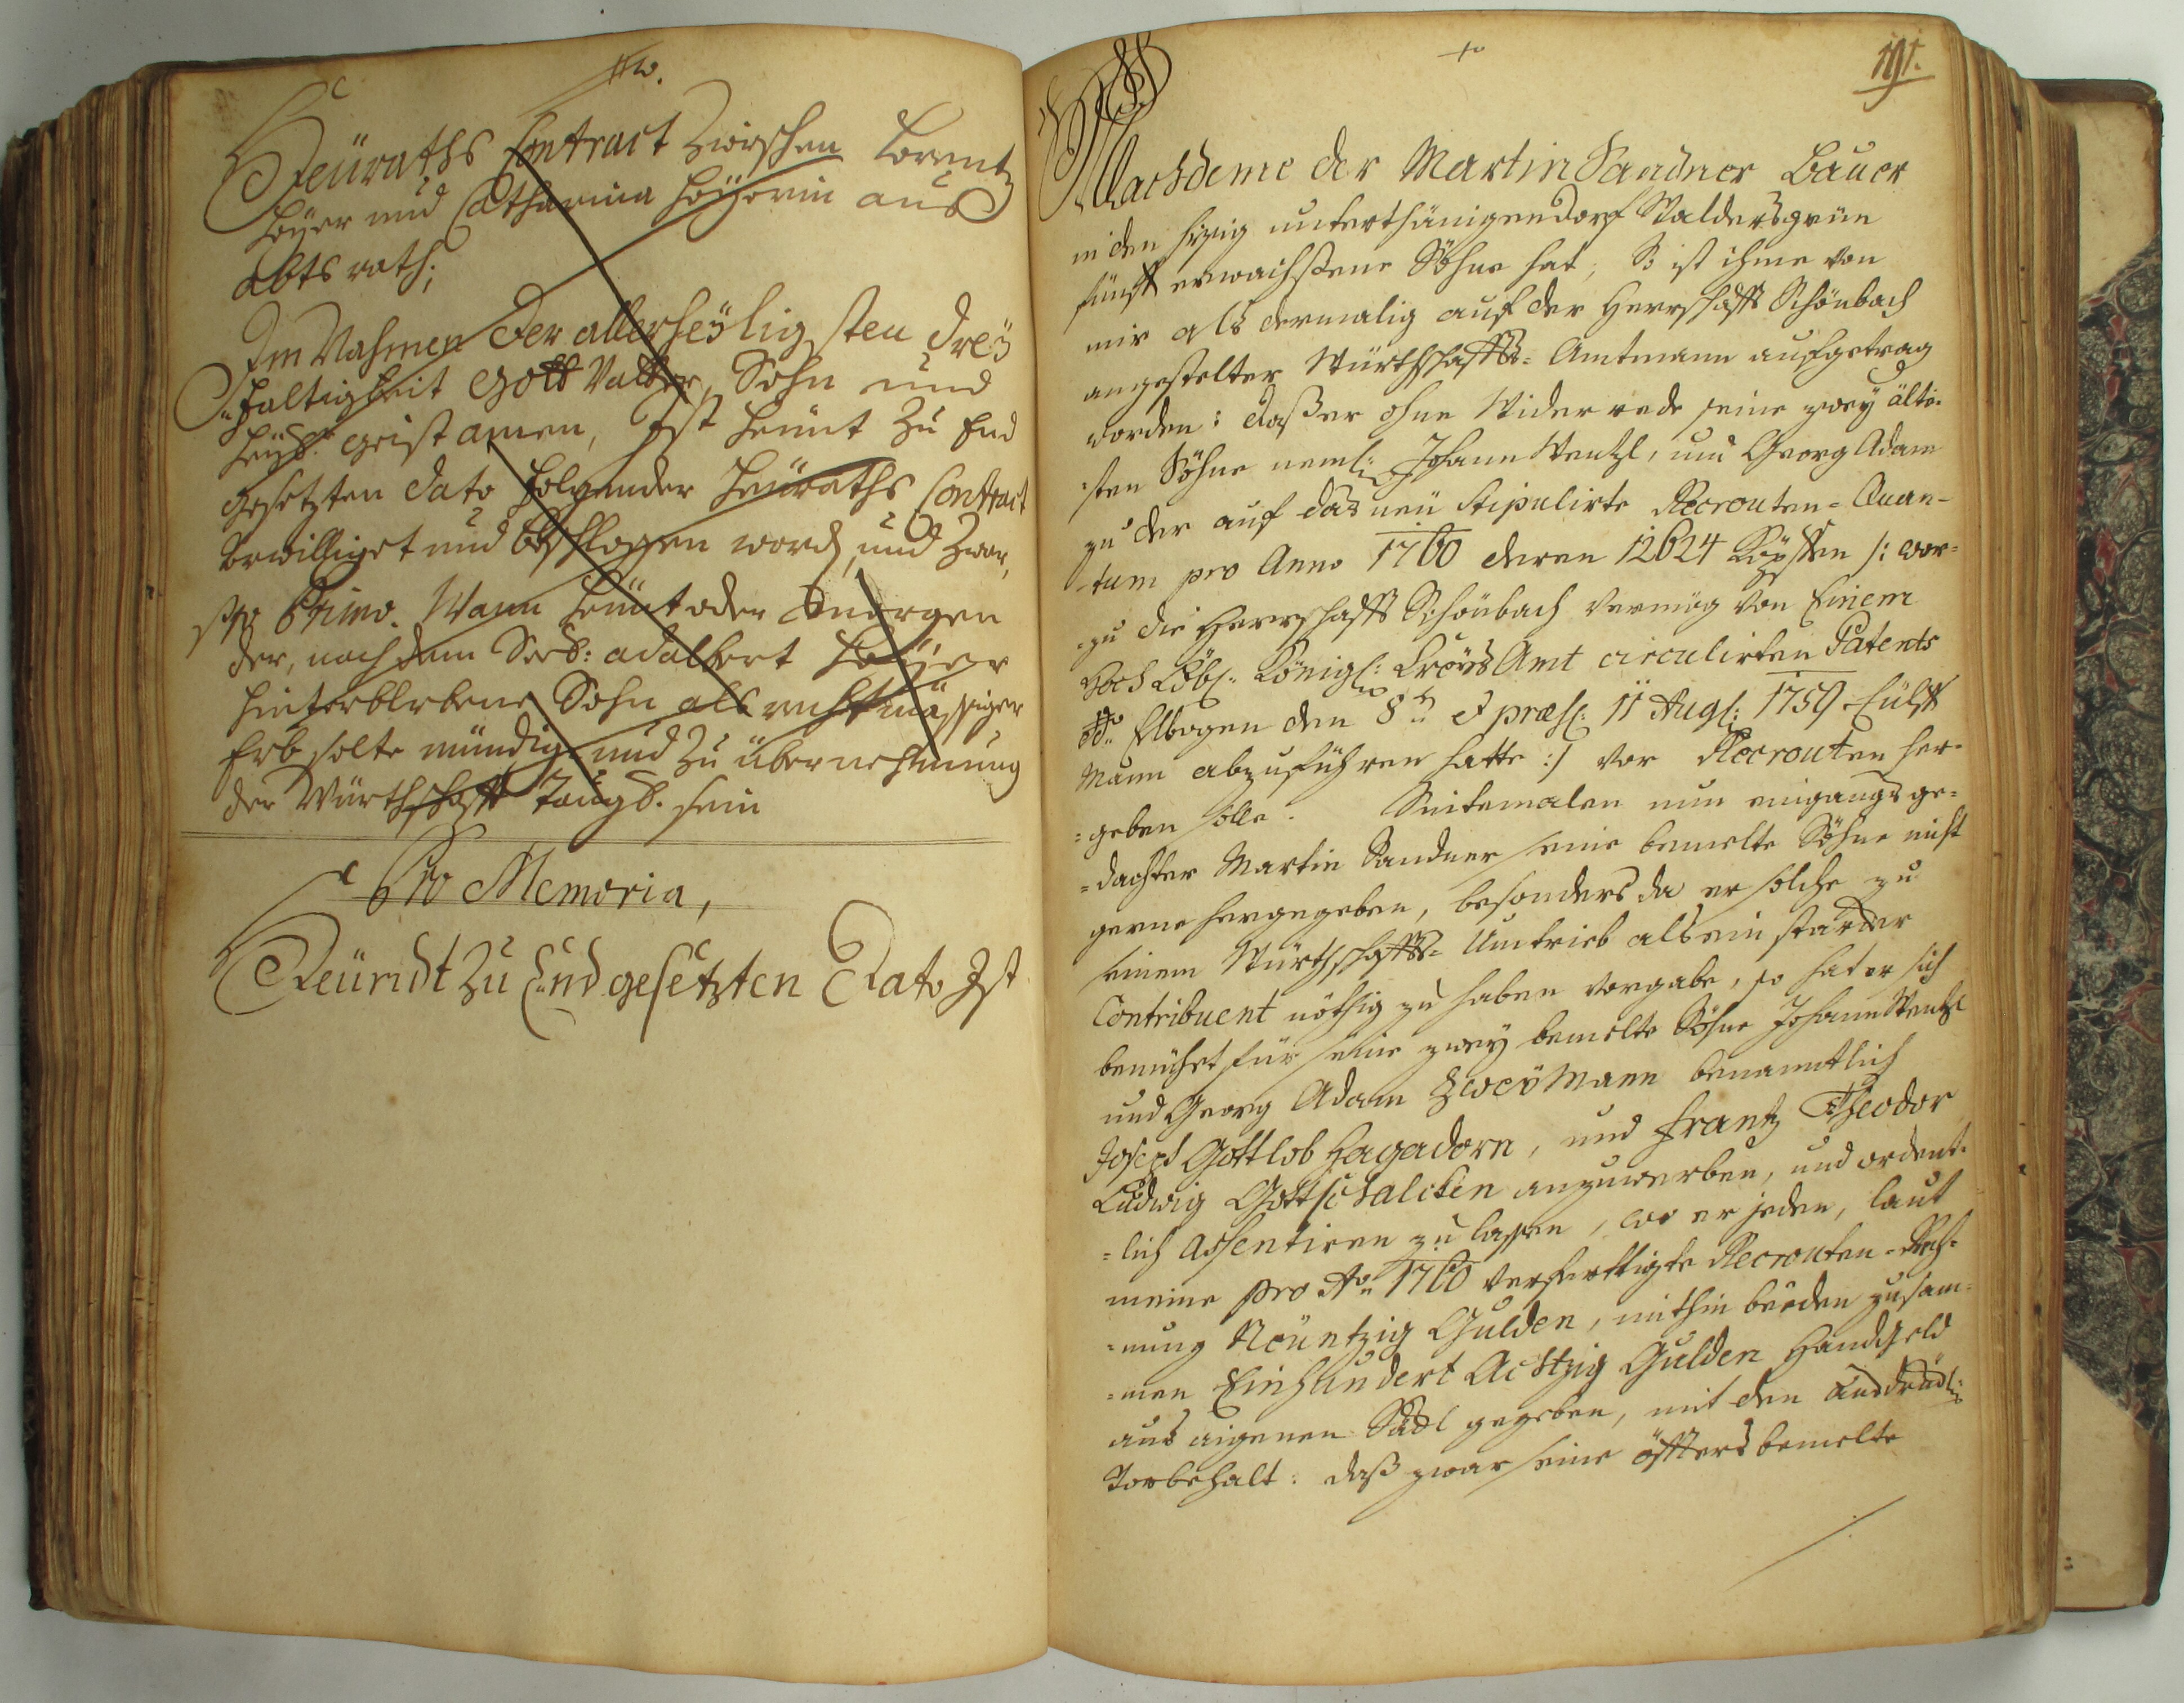 Heüraths Contract Zwischen Lorentz
Heÿer und Catharina Heÿerin aus
Abtsroth;
Im Nahmen Der allerheÿligsten Dreÿ
faltigkeit Gott Vatter, Sohn und
heÿl: geist amen, Ist heünt zu End
gesetzten dato folgender heüraths Contract
bewilliget und beschlossen word, und Zwar,
Primo. Wann heünt oder morgen
der, nach dem Seel: adalbert Heÿer
hinterblebene Sohn als rechtmässiger
Erb solte mündig und Zu übernehmung
der Würthschafft taugl. sein
Pro Memoria,
Heündt Zu End gesetzten Dato Ist
191.
Nachdeme der Martin Sandner Bauer
in den hisig unterthänigen Dorf Waldersgrün
fünff erwachßene Söhne hat, So ist ihme von
mir als dermalig auf der Herrschafft Schönbach
angestelter Würthschaffts= Amtmann aufgetrag
worden: daß er ohne Widerrede seine zweÿ älte=
=sten Söhne neml: Johann Wentzl, und Georg Adam
zu der auf das neü stipulirte Recrouten=Quan=
=tum pro Anno 1760 deren 12624 Köpffen /: wor=
=zu die Herrschafft Schönbach vermög von Einem
Hoch Löbl: Königl: Creÿs Amt circulirten Patents
dto Elbogen den 8ten et præs: 11 Aug: 1759 Eülff
Mann abzuführen hatte :/ vor Recrouten her=
=geben solle. Sintemalen nun eingangs ge=
=dachter Martin Sandner seine bemelte Söhne nicht
gerne hergegeben, besonders da er solche zu
seinem Würthschaffts= Umtrieb als ein starcker
Contribuent nöthig zu haben vorgabe, so hat er sich
bemühet für seine zweÿ bemelte Söhne Johann Wentzl
und Georg Adam Zweÿ Mann benanntlich
Joseph Gottlob Hagadorn, und Frantz Theodor
Ludwig Gottschalcken anzuwerben, und ordent=
=lich assentiren zu lassen, wo er jeden, laut
meine pro Ao 1760 verferttigte Recrouten=Rech=
=nung Neüntzig Gulden, mithin beeden zusam=
=men Einhundert Achtzig Gulden Handgeld
aus aigenen Säckl gegeben, mit den ausdrückl:
Vorbehalt: daß zwar seine öffters bemelte